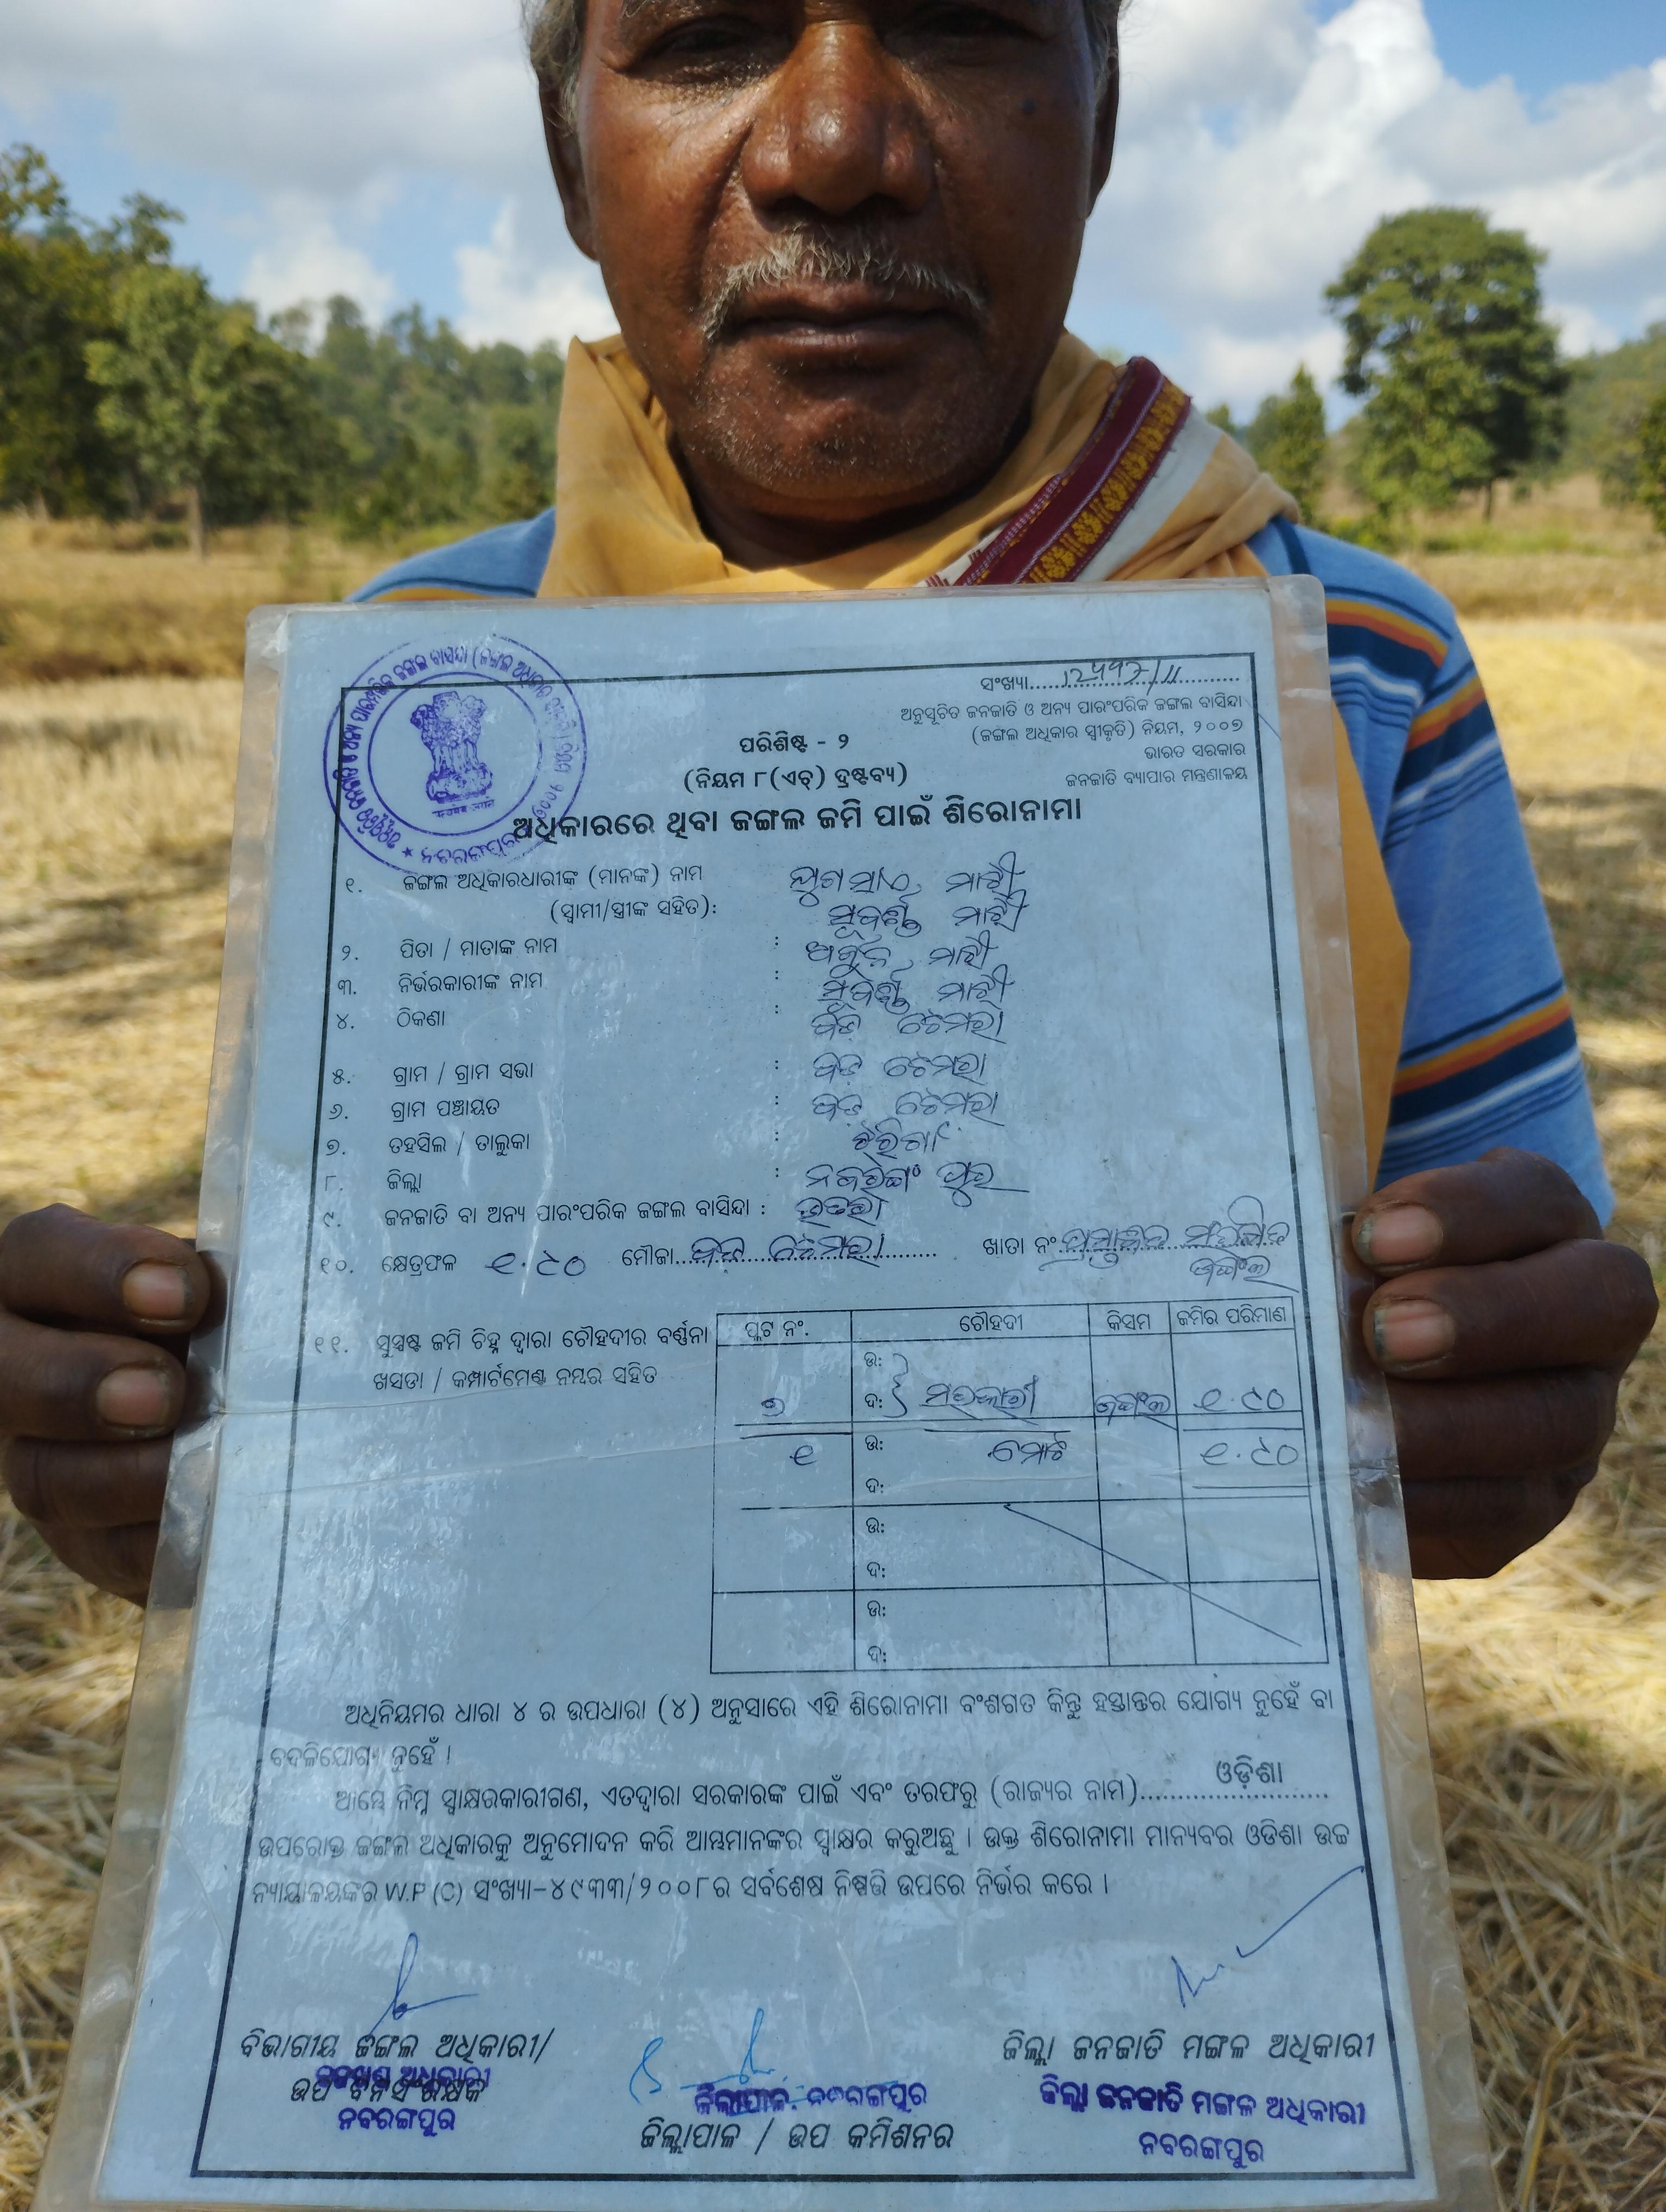 ସଂଖ୍ୟା
ଅନୁସୂଚିତ ଜନଜାତି ଓ ଅନ୍ୟ ପାରଂପରିକ ଜଙ୍ଗଲ ବାସିନ୍ଦା
(ଜଙ୍ଗଲ ଅଧିକାର ସ୍ୱୀକୃତି) ନିୟମ, ୨୦୦୭
ଭାରତ ସରକାର
ଜନଜାତି ବ୍ୟାପାର ମନ୍ତ୍ରଣାଳୟ
ପରିଶିଷ୍ଟ - ୨
(ନିୟମ ୮(ଏଚ୍) ଦ୍ରଷ୍ଟବ୍ୟ)
ଅଧିକାରରେ ଥିବା ଜଙ୍ଗଲ ଜମି ପାଇଁ ଶିରୋନାମା
୧. ଜଙ୍ଗଲ ଅଧିକାରଧାରୀଙ୍କ (ମାନଙ୍କ) ନାମ ମାଝୀ
(ସ୍ୱାମୀ/ସ୍ତ୍ରୀଙ୍କ ସହିତ): ସୁବର୍ଣ୍ଣ ମାଝୀ
୨. ପିତା / ମାତାଙ୍କ ନାମ : ଅର୍ଜୁନ ମାଝୀ
୩. ନିର୍ଭରକାରୀଙ୍କ ନାମ : ସୁବର୍ଣ୍ଣ ମାଝୀ
୪. ଠିକଣା : ବଡ଼ ଟେମରା
୫. ଗ୍ରାମ / ଗ୍ରାମ ସଭା : ବଡ଼ ଟେମରା
୬. ଗ୍ରାମ ପଞ୍ଚାୟତ : ବଡ଼ ଟେମରା
୭. ତହସିଲ / ତାଲୁକା : ଝରିଗାଁ
୮. ଜିଲ୍ଲା : ନବରଙ୍ଗପୁର
୯. ଜନଜାତି ବା ଅନ୍ୟ ପାରଂପରିକ ଜଙ୍ଗଲ ବାସିନ୍ଦା : ଭତରା
୧୦. କ୍ଷେତ୍ରଫଳ ୧.୯୦ ମୌଜା ବଡ଼ ଟେମରା ଖାତା ନଂ ପ୍ରସ୍ତାବିତ ସଂରକ୍ଷିତ
ଜଙ୍ଗଲ
୧୧. ସୁସ୍ପଷ୍ଟ ଜମି ଚିହ୍ନ ଦ୍ୱାରା ଚୌହଦୀର ବର୍ଣ୍ଣନା
ଖସଡା / କମ୍ପାର୍ଟମେଣ୍ଟ ନମ୍ବର ସହିତ
ପ୍ଲଟ ନଂ. ଚୌହଦୀ କିସମ ଜମିର ପରିମାଣ
ଉ:
ଦ: ସରକାରୀ ଜଙ୍ଗଲ ୧.୯୦
୧ ଉ: ମୋଟ ୧.୯୦
ଦ:
ଉ:
ଦ:
ଉ:
ଦ:
ଅଧିନିୟମର ଧାରା ୪ ର ଉପଧାରା (୪) ଅନୁସାରେ ଏହି ଶିରୋନାମା ବଂଶଗତ କିନ୍ତୁ ହସ୍ତାନ୍ତର ଯୋଗ୍ୟ ନୁହେଁ ବା
ବଦଳିଯୋଗ୍ୟ ନୁହେଁ ।
ଆମ୍ଭେ ନିମ୍ନ ସ୍ୱାକ୍ଷରକାରୀଗଣ, ଏତଦ୍ୱାରା ସରକାରଙ୍କ ପାଇଁ ଏବଂ ତରଫରୁ (ରାଜ୍ୟର ନାମ) ଓଡ଼ିଶା
ଉପରୋକ୍ତ ଜଙ୍ଗଲ ଅଧିକାରକୁ ଅନୁମୋଦନ କରି ଆମ୍ଭମାନଙ୍କର ସ୍ୱାକ୍ଷର କରୁଅଛୁ । ଉକ୍ତ ଶିରୋନାମା ମାନ୍ୟବର ଓଡିଶା ଉଚ୍ଚ
ନ୍ୟାୟାଳୟଙ୍କର W.P (C) ସଂଖ୍ୟା-୪୯୩୩/୨୦୦୮ର ସର୍ବଶେଷ ନିଷ୍ପତ୍ତି ଉପରେ ନିର୍ଭର କରେ ।
ବିଭାଗୀୟ ଜଙ୍ଗଲ ଅଧିକାରୀ/
ଉପ ବନସଂରକ୍ଷକ
ନବରଙ୍ଗପୁର
ଜିଲ୍ଲାପାଳ, ନବରଙ୍ଗପୁର
ଜିଲ୍ଲାପାଳ / ଉପ କମିଶନର
ଜିଲ୍ଲା ଜନଜାତି ମଙ୍ଗଳ ଅଧିକାରୀ
ଜିଲ୍ଲା ଜନଜାତି ମଙ୍ଗଳ ଅଧିକାରୀ
ନବରଙ୍ଗପୁର